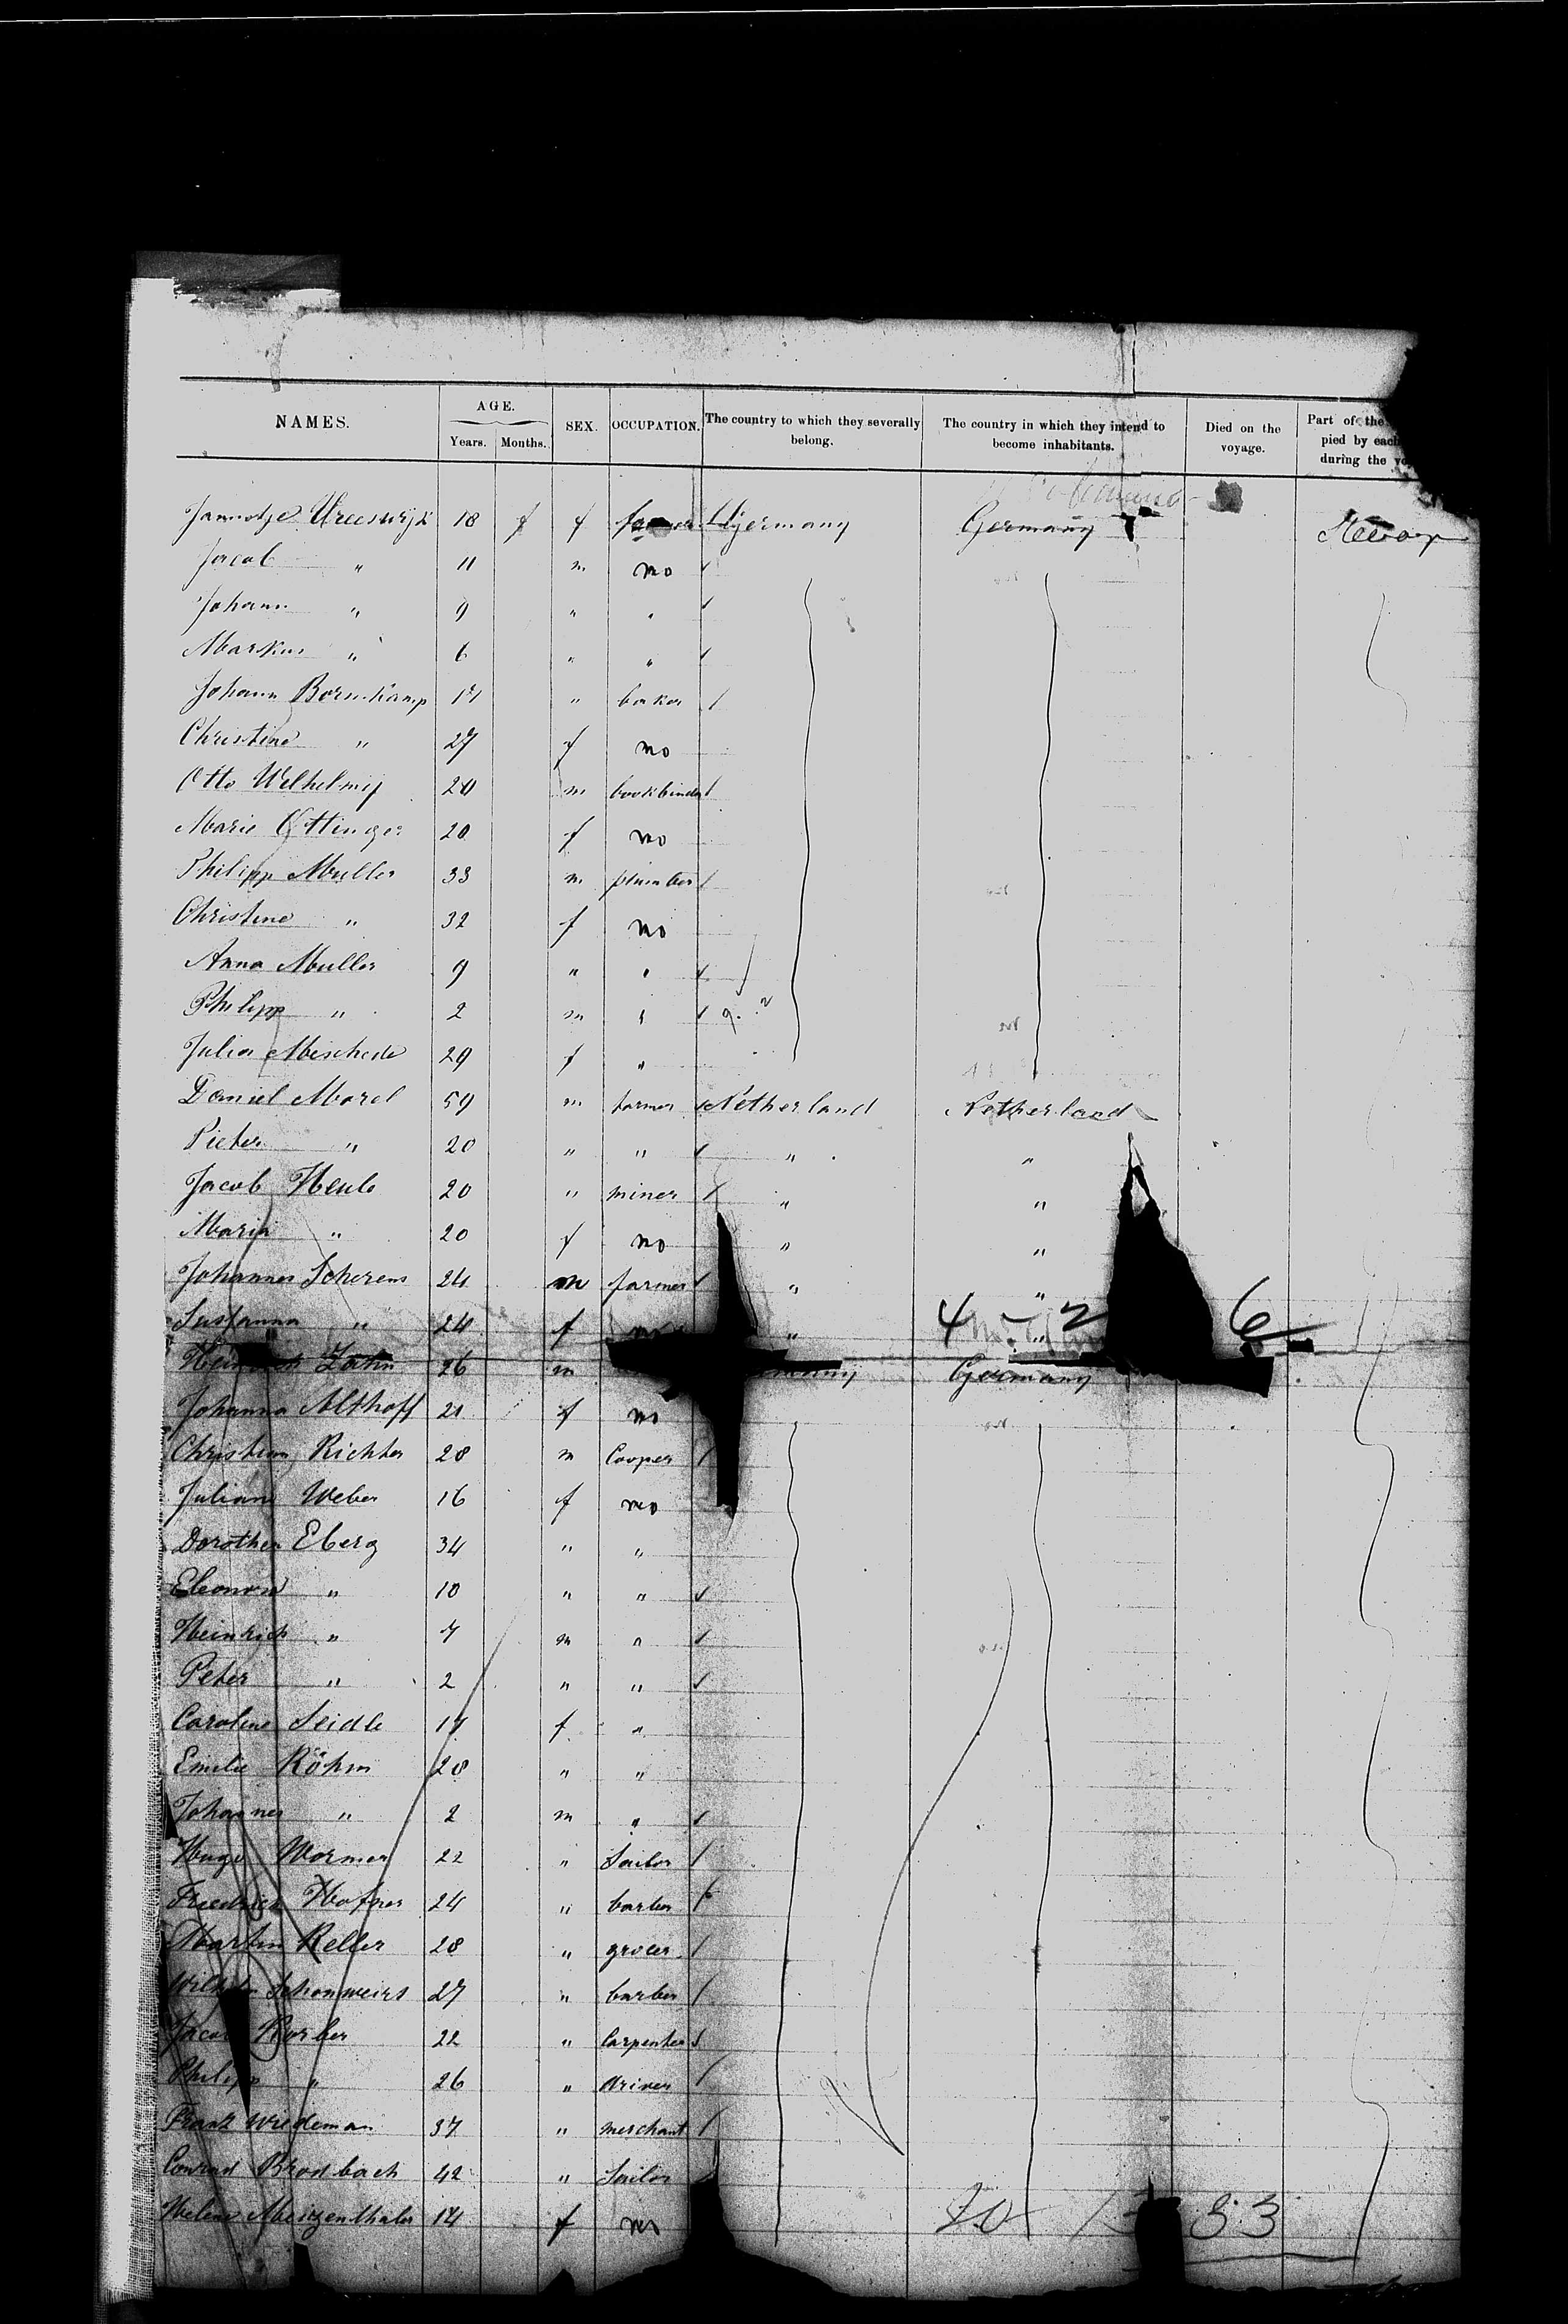 NAMES. AGE. SEX. OCCUPATION. The country to which they severally belong. The country in which they intend to become inhabitants. Died on the voyage. Part of the pied by each during the
Years. Months.
18 f Germany Germany
Jacob " 11 m no
Johann " 9 " "
Markus " 6 " "
Johann Bornkamp " baker
Christine " 27 f no
Otto Wilhelmij 20 m bookbinder
Marie Ottinger 20 f no
Philipp Muller 33 m plumber
Christine " 32 f no
Anna Muller 9 " "
Philipp " 2 m "
Julia Meschede 29 f "
Daniel Morel 59 m farmer Netherland Netherland
Pieter " 20 " " " "
Jacob Heule 20 " miner " "
Maria " 20 f no " "
Johannes Scherens 24 m farmer " "
Susanna " 24 f no " " 4 - 2 6
Zahn 26 m Germany
Johanna Althoff 21 f no
Christian Richter 28 m Cooper
Juliane Weber 16 f no
Dorothea Eberg 34 " "
Eleonore " 10 " "
Heinrich " 7 m "
Peter " 2 " "
Caroline Seidle 17 f "
Emilie Röhm 28 " "
Johannes " 2 m "
Hugo Wormer 22 " Sailor
Friedrich Hafner 24 " barber
Martin Keller 28 " grocer
Wilhelm Schonweirs 27 " barber
Jacob Korber 22 " Carpenter
Philipp " 26 " driver
Franz Wiedeman 37 " merchant
Conrad Brodbach 42 " Sailor
Helene 14 f no 33